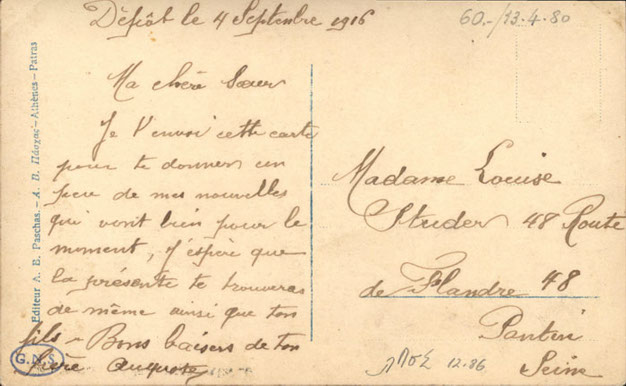 Dépôt le 4 Septenbre 1916
Ma chère Sœur
Je t'envoi cette carte
pour te donner un
peu de mes nouvelles
qui vont bien pour le
moment, j'espère que
la présente te trouveras
de même ainsi que ton
fils - Bons baisers de ton
frère Auguste
Madame Louise
Studer 48 Route
de Flandre 48
Pantin
Seine
60.-/13.4.80
12.86
Editeur A. B. Paschas. - Α. Β. Πάσχας - Athènes - Patras
G.N.S.